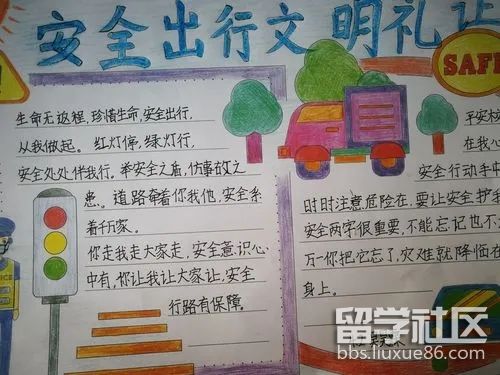 安全出行文明礼让
SAFE
生命无返程，珍惜生命，安全出行，
从我做起。红灯停，绿灯行，
安全处处伴我行。举安全之盾，防事故之
患。道路牵着你我他，安全系
着千万家。
你走我走大家走，安全意识心
中有，你让我让大家让，安全
行路有保障。
平安校
在我心
安全行动手中
时时注意危险在，要让安全护我
安全两字很重要，不能忘记也不
万一你把它忘了，灾难就降临在
身上。
留学社区
bbs.liuxue86.com